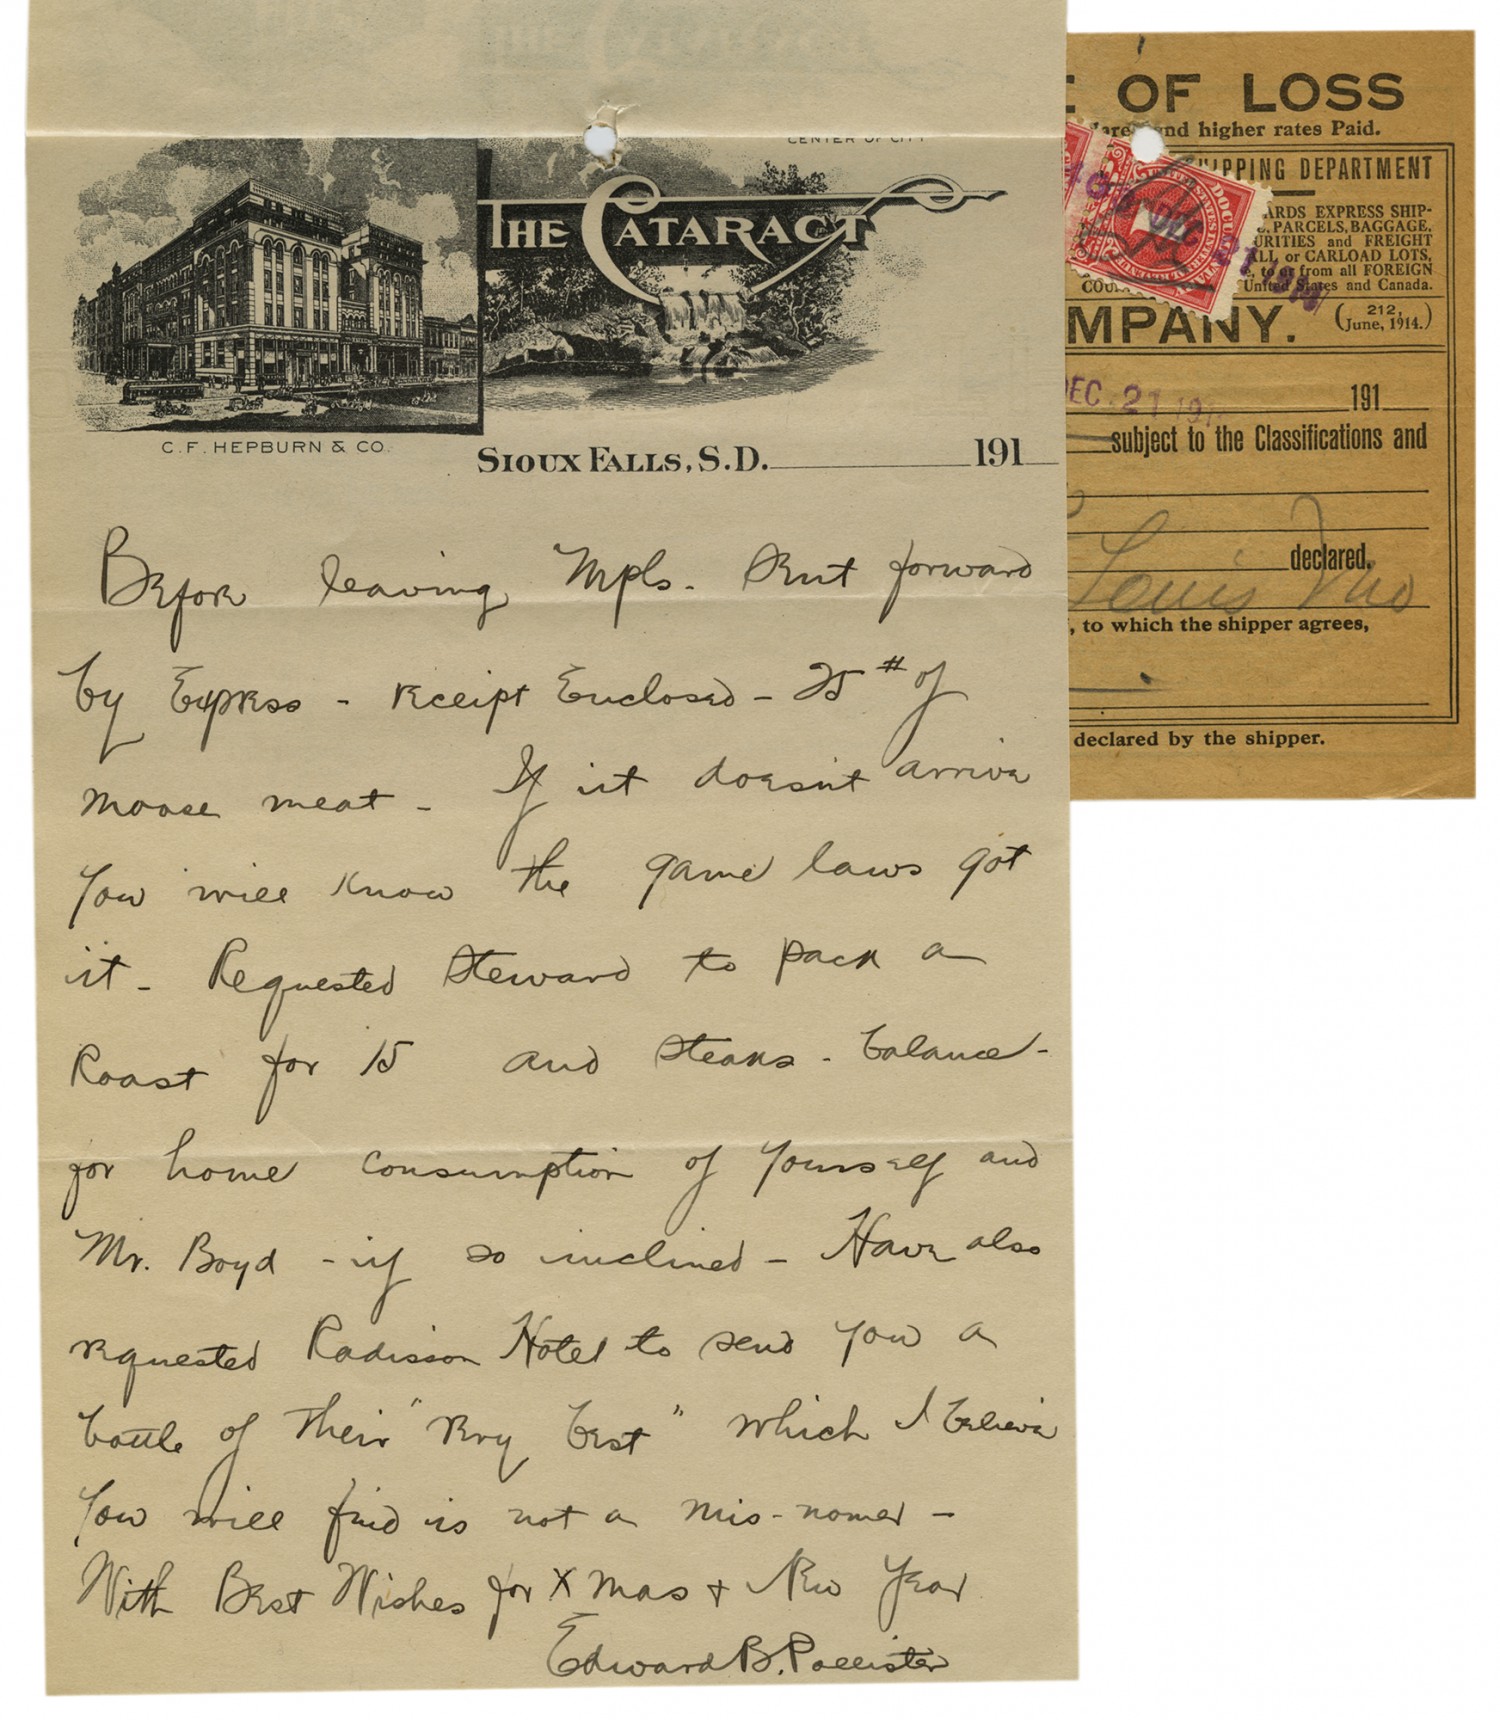 CENTER OF CITY
THE CATARACT
C. F. HEPBURN & CO.
SIOUX FALLS, S.D. 191
Before leaving Mpls. Sent forward
by Express - receipt Enclosed - 25 # of
moose meat - If it doesn't arrive
you will know the game laws got
it - Requested Steward to pack a
Roast for 15 and steaks - balance -
for home consumption of yourself and
Mr. Boyd - if so inclined - Have also
requested Radisson Hotel to send you a
bottle of their "Very best" which I believe
you will find is not a mis-nomer -
With Best Wishes for Xmas + New Year
Edward B. Pollister
OF LOSS
and higher rates Paid.
SHIPPING DEPARTMENT
EXPRESS SHIP-
PARCELS, BAGGAGE,
and FREIGHT
or CARLOAD LOTS,
to or from all FOREIGN
United States and Canada.
DOCUMENTARY
UNITED STATES INTER
MPANY.
212,
(June, 1914.)
DEC 21 191
191
subject to the Classifications and
declared.
Louis Mo
, to which the shipper agrees,
declared by the shipper.